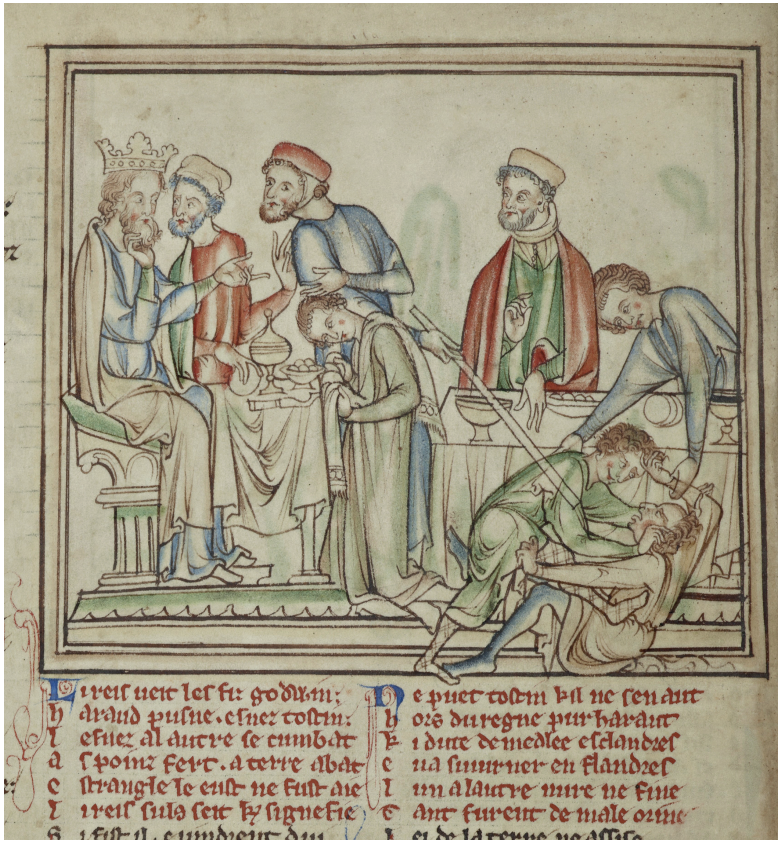 Li reis ueit les fiz godwin;
haraud pusne. esnez tostin:
lesnez al autre se cumbat
as poinz fert. a terre abat
estrangle le eust ne fust aie
li reis suls seit ke signefie
Ne puet tostin kil ne sen aut
hors du regne pur haraut
ki dute de medlee esclandres
e ua suiurner en flandres
lun a lautre nuire ne fine
tant furent de male orine